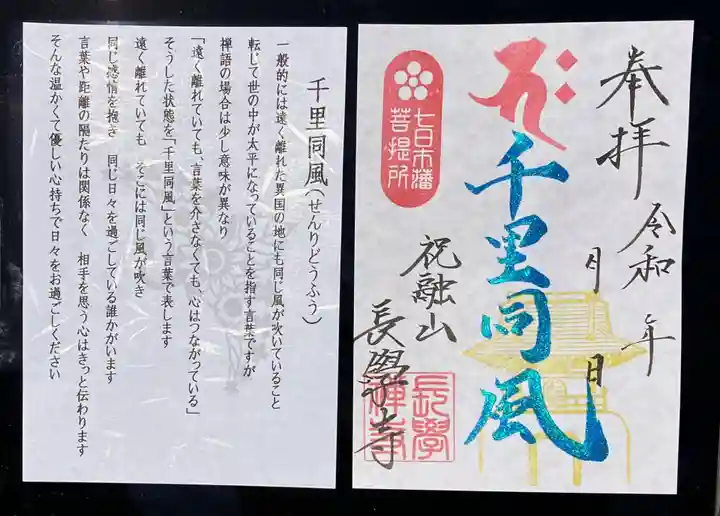 千里同風（せんりどうふう）
一般的には遠く離れた異国の地にも同じ風が吹いていること
転じて世の中が太平になっていることを指す言葉ですが
禅語の場合は少し意味が異なり
「遠く離れていても、言葉を介さなくても、心はつながっている」
そうした状態を「千里同風」という言葉で表します
遠く離れていても　そこには同じ風が吹き
同じ感情を抱き　同じ日々を過ごしている誰かがいます
言葉や距離の隔たりは関係なく　相手を思う心はきっと伝わります
そんな温かくて優しい心持ちで日々をお過ごしください
奉拝
令和　年
月　日
千里同風
七日市藩
菩提所
祝融山
長學寺
長學
禅寺